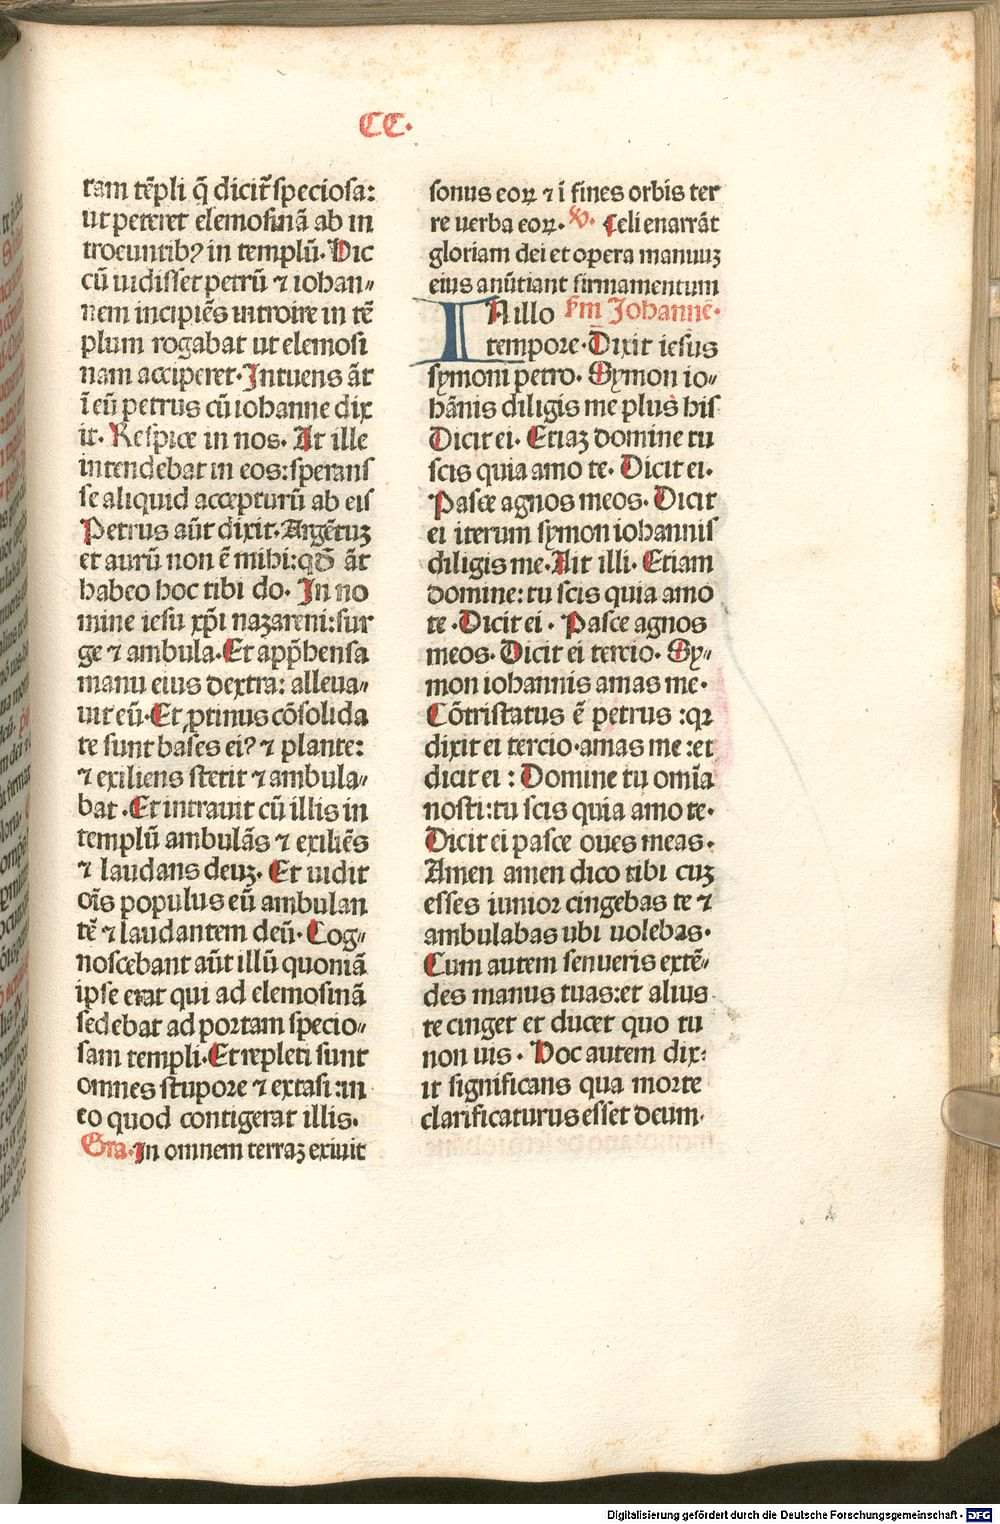 CC.
ram tēpli q̄ dicit᷑ speciosa:
ut peteret elemosinā ab in
troeuntibꝰ in templū. Hic
cū uidisset petrū ⁊ iohan⸗
nem incipiēs introire in tē
plum rogabat ut elemosi
nam acciperet. Intuens āt
ī eū petrus cū iohanne dix
it. Respice in nos. At ille
intendebat in eos: sperans
se aliquid accepturū ab eis
Petrus aūt dixit. Argētuꝫ
et aurū non ē mihi: qđ āt
habeo hoc tibi do. In no
mine iesu xp̄i nazareni: sur
ge ⁊ ambula. Et app̄hensa
manu eius dextra: alleua⸗
uit eū. Et ꝓtinus cōsolida
te sunt bases eiꝰ ⁊ plante:
⁊ exiliens stetit ⁊ ambula⸗
bat. Et intrauit cū illis in
templū ambulās ⁊ exiliēs
⁊ laudans deuꝫ. Et uidit
oīs populus eū ambulan
tē ⁊ laudantem deū. Cog⸗
noscebant aūt illū quoniā
ipse erat qui ad elemosinā
sedebat ad portam specio⸗
sam templi. Et repleti sunt
omnes stupore ⁊ extasi: in
eo quod contigerat illis.
Gra. In omnem terraꝫ exiuit
sonus eoꝝ ⁊ ī fines orbis ter
re uerba eoꝝ. V. Celi enarrāt
gloriam dei et opera manuuꝫ
eius anūtiant firmamentum
IN illo s̄m Johannē.
tempore. Dixit iesus
symoni petro. Symon io⸗
hānis diligis me plus his
Dicit ei. Etiaꝫ domine tu
scis quia amo te. Dicit ei.
Pasce agnos meos. Dicit
ei iterum symon iohannis
diligis me. Ait illi. Etiam
domine: tu scis quia amo
te. Dicit ei. Pasce agnos
meos. Dicit ei tercio. Sy⸗
mon iohannis amas me.
Cōtristatus ē petrus: qꝛ
dixit ei tercio. amas me: et
dicit ei: Domine tu omīa
nosti: tu scis quia amo te.
Dicit ei pasce oues meas.
Amen amen dico tibi cuꝫ
esses iunior cingebas te ⁊
ambulabas ubi uolebas.
Cum autem senueris extē⸗
des manus tuas: et alius
te cinget et ducet quo tu
non uis. Hoc autem dix:
it significans qua morte
clarificaturus esset deum.
Digitalisierung gefördert durch die Deutsche Forschungsgemeinschaft - DFG